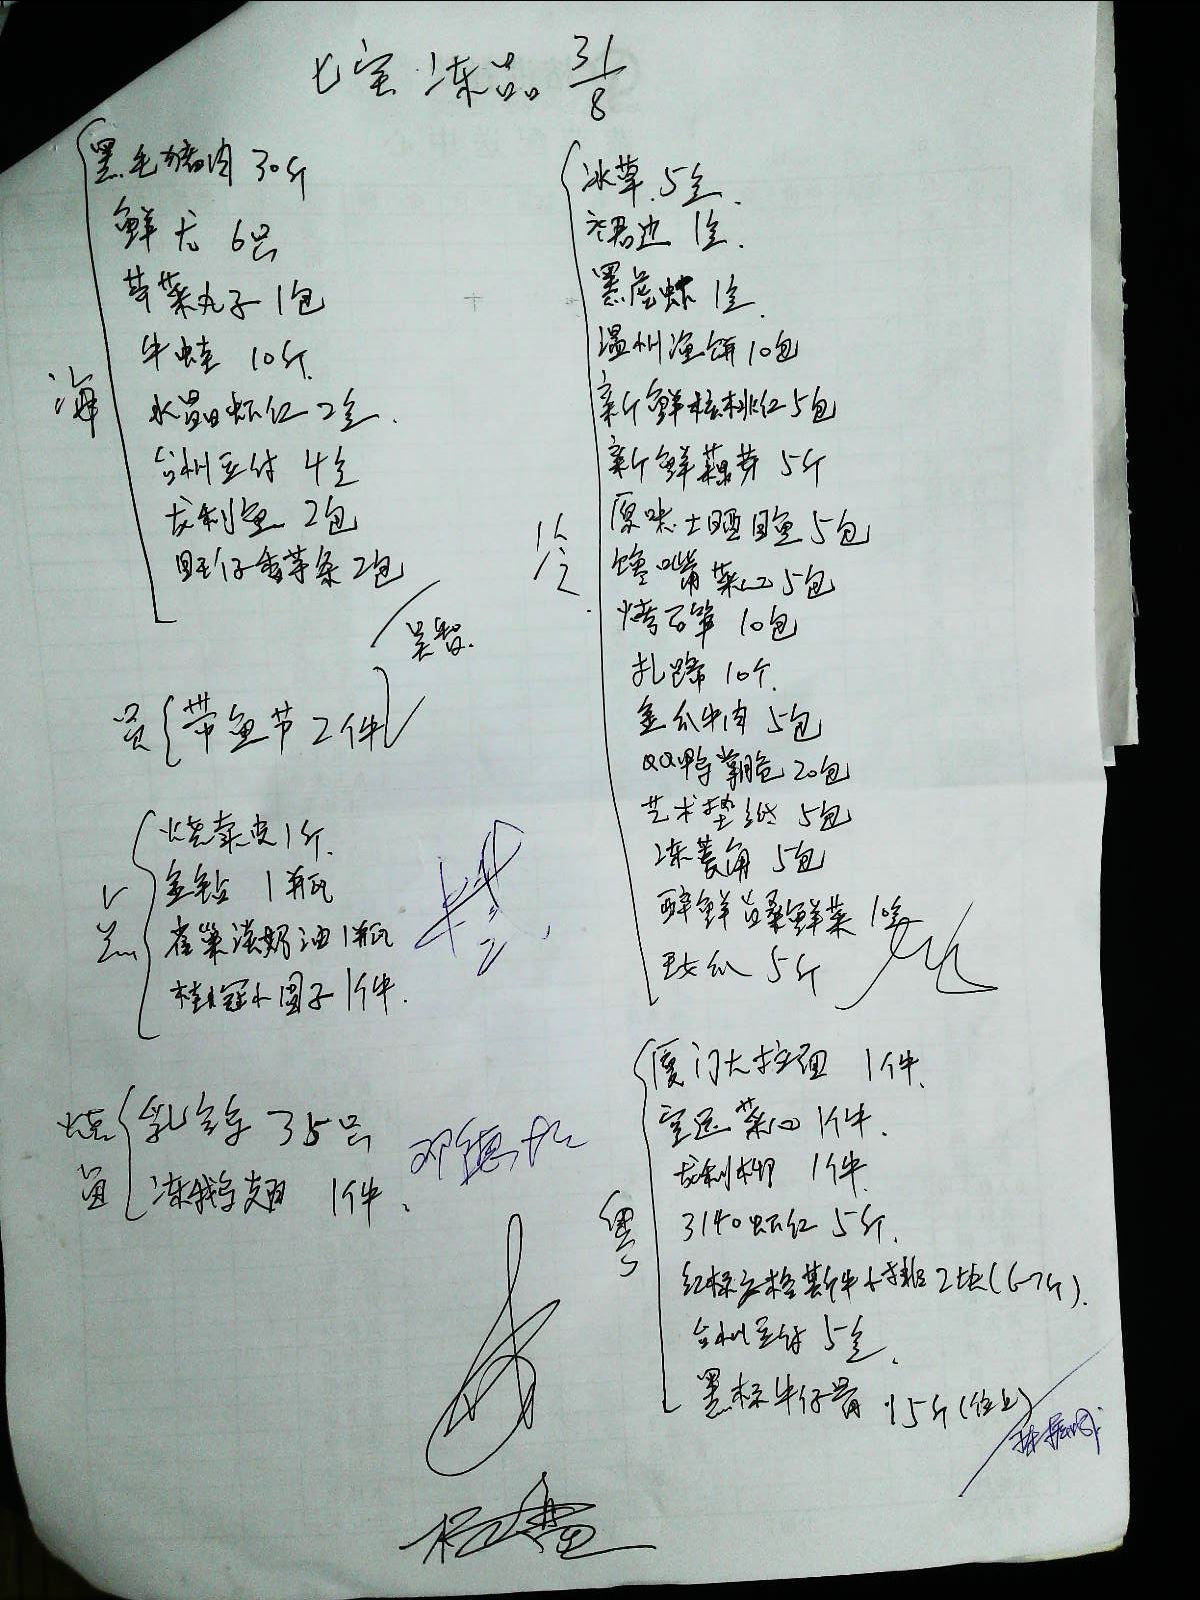 七宝冻品 31/8
海
黑毛猪肉 30斤
鲜尤 6只
芋菜丸子 1包
牛蛙 10斤
水晶虾仁 2盒
台州豆付 4盒
龙利鱼 2包
旺仔香芋条 2包
吴智
员
带鱼节 2件
点
烧卖皮 1斤
金钻 1瓶
雀巢淡奶油 1瓶
桂冠小圆子 1件
烧
乳鸽 35只
冻鹅翅 1件
邓德
冷
冰草 5盒
裙边 1盒
黑虎虾 1盒
温州鱼饼 10包
新鲜核桃仁 5包
新鲜藕芽 5斤
原味土晒目鱼 5包
馋嘴菜心 5包
烤石笋 10包
扎蹄 10个
金瓜牛肉 5包
QQ鸭掌脆 20包
艺术垫纸 5包
冻菱角 5包
醉鲜 鲜菜 1盒
女瓜 5斤
粤
厦门大拉面 1件
宝运菜心 1件
龙利柳 1件
3140虾仁 5斤
红标安格斯牛小排 2块(6-7斤)
台州豆付 5盒
黑标牛仔骨 15斤(位上)